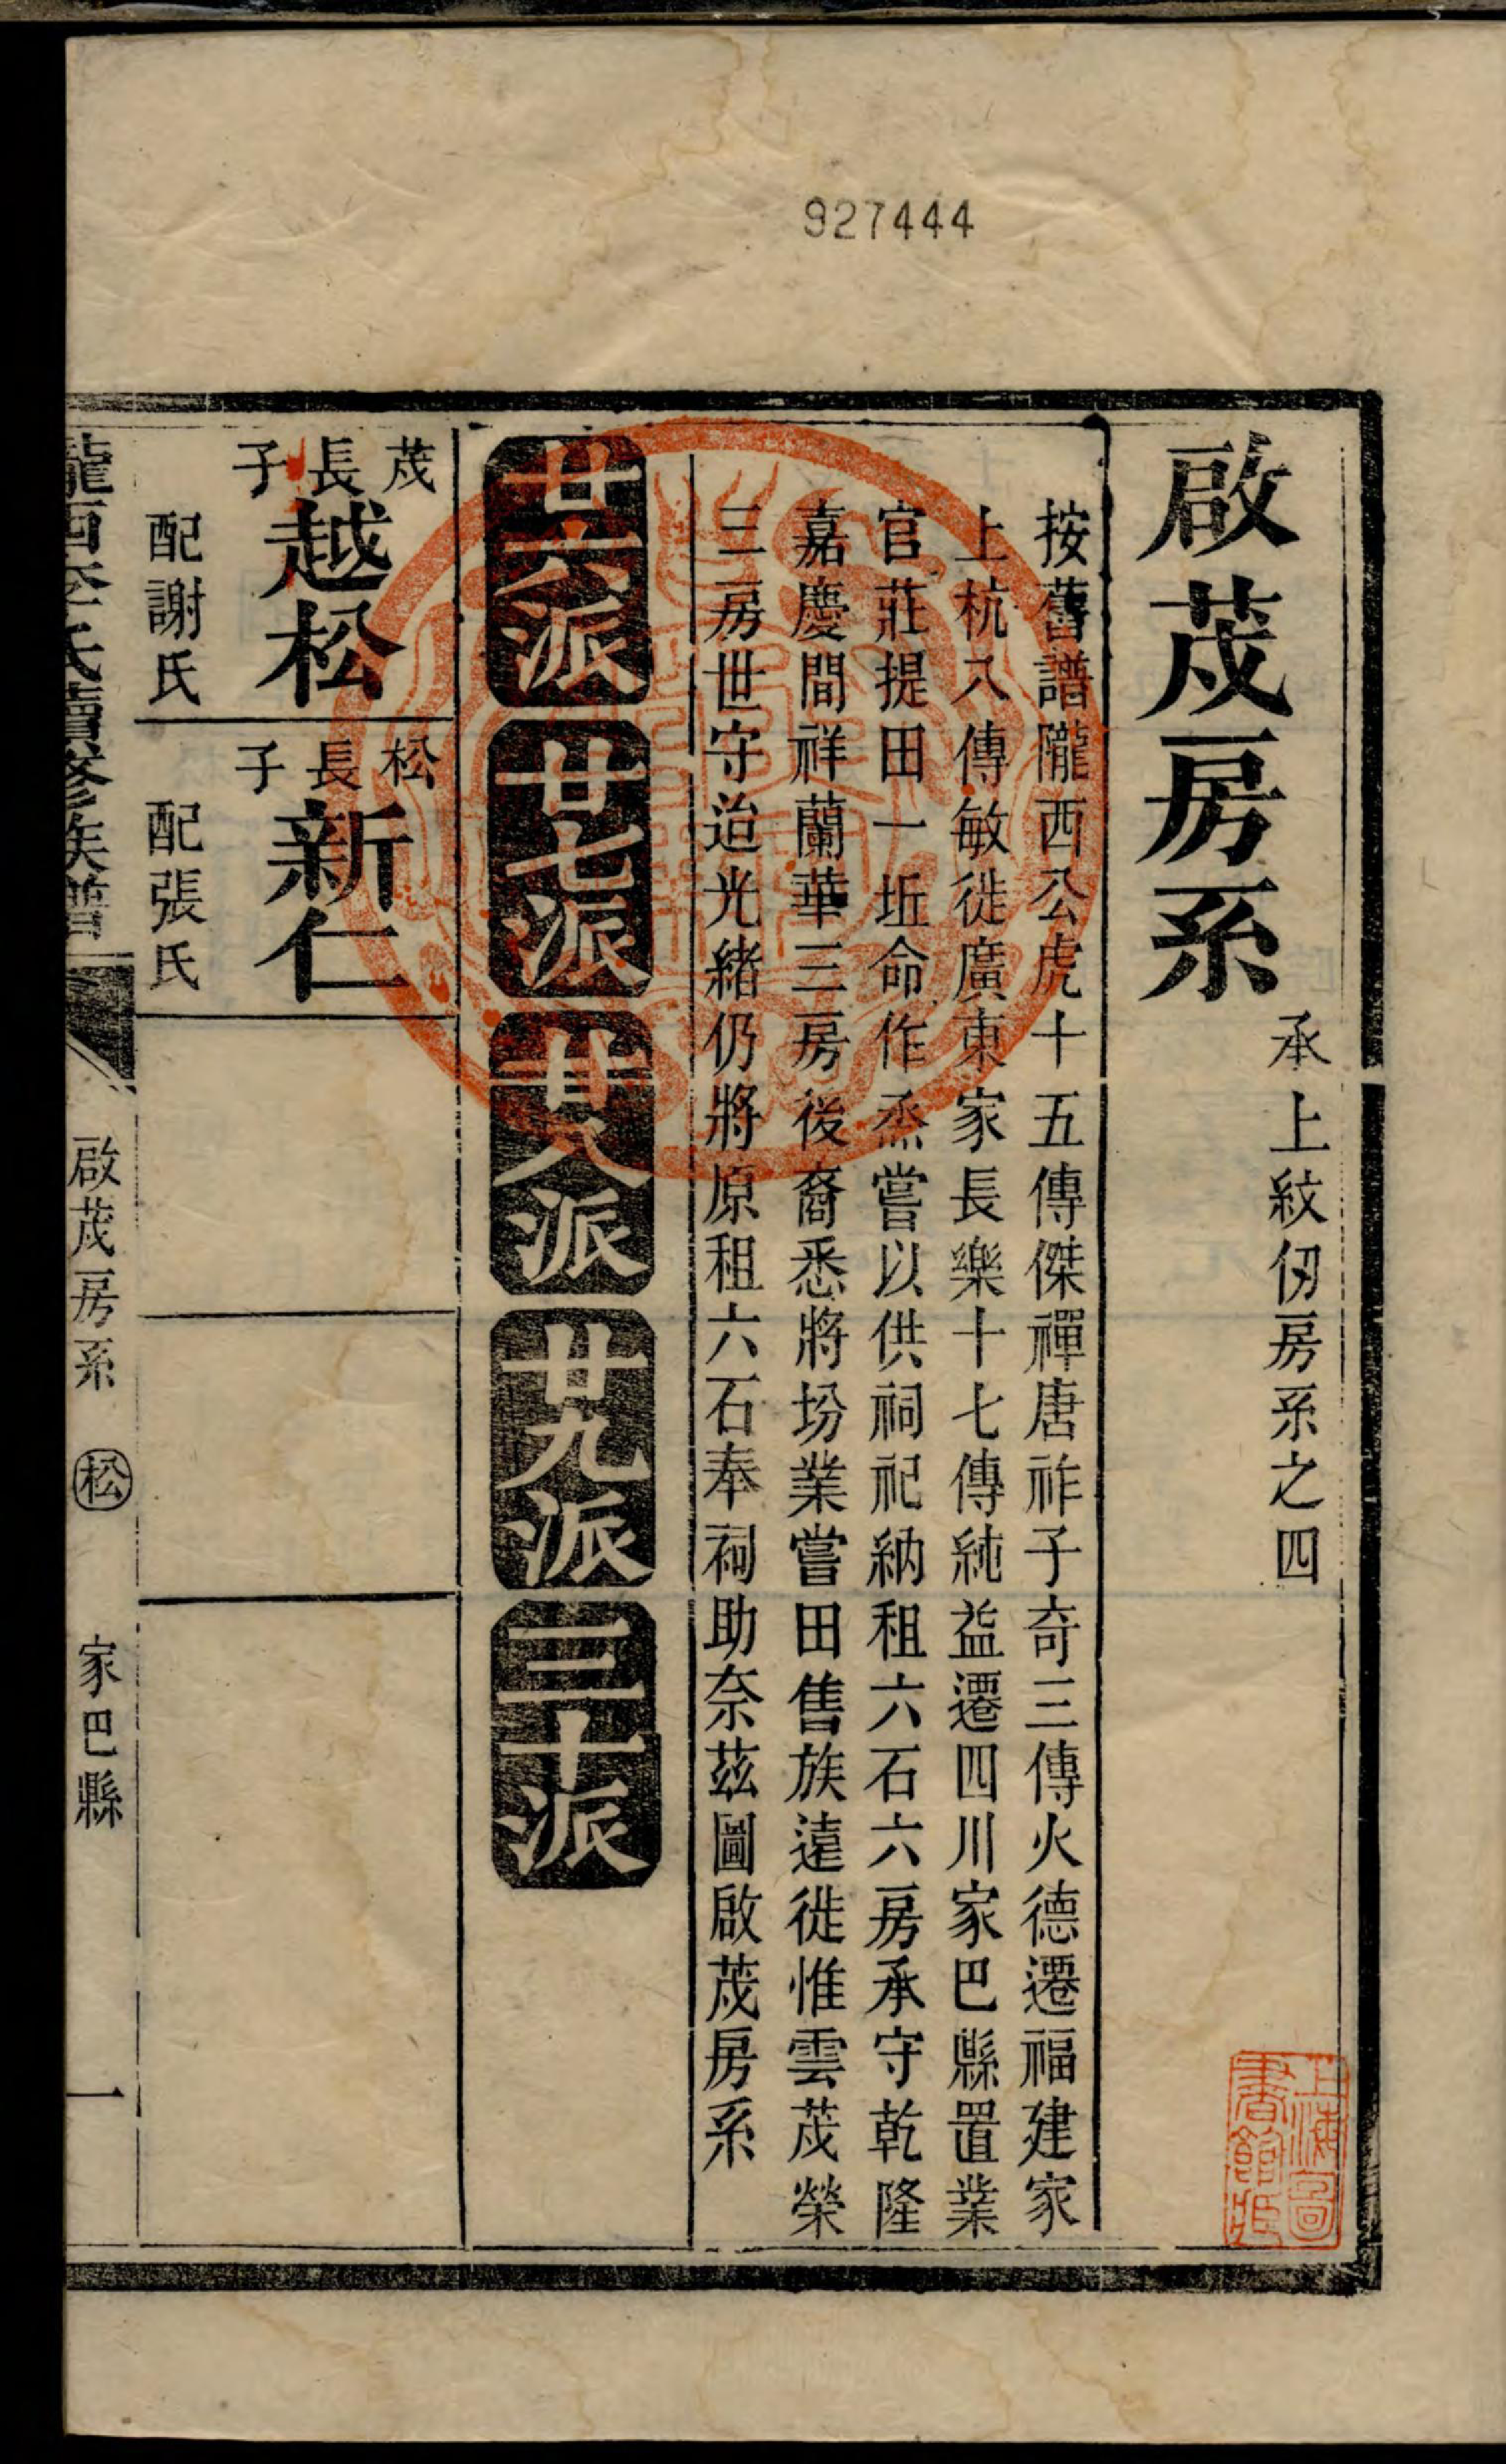 927444
啟茂房系
承上紋仞房系之四
按舊譜隴西公虎十五傳傑禪唐祚子奇三傳火德遷福建家
上杭八傳敏徙廣東家長樂十七傳純益遷四川家巴縣置業
官莊提田一坵命作烝嘗以供祠祀納租六石六房承守乾隆
嘉慶間祥蘭華三房後裔悉將坋業嘗田售族遠徙惟雲茂榮
三房世守迨光緒仍將原租六石奉祠助奈茲圖啟茂房系
廿六派
廿七派
廿八派
廿九派
三十派
茂長子
越松
配謝氏
松長子
新仁
配張氏
隴西李氏續修族譜
啟茂房系
松
家巴縣
一
上海圖
書館藏